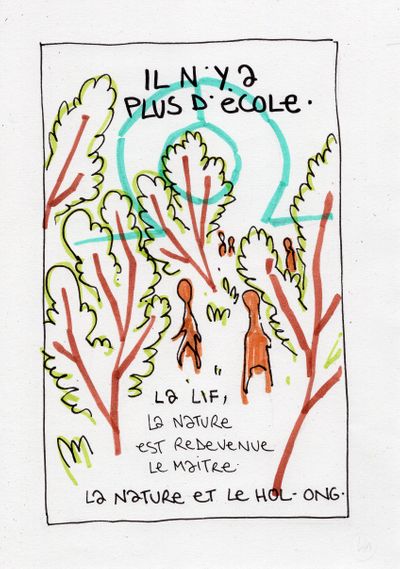 IL N'Y A
PLUS D'ECOLE.
LA LIF,
LA NATURE
EST REDEVENUE
LE MAITRE.
LA NATURE ET LE HOL-ONG.